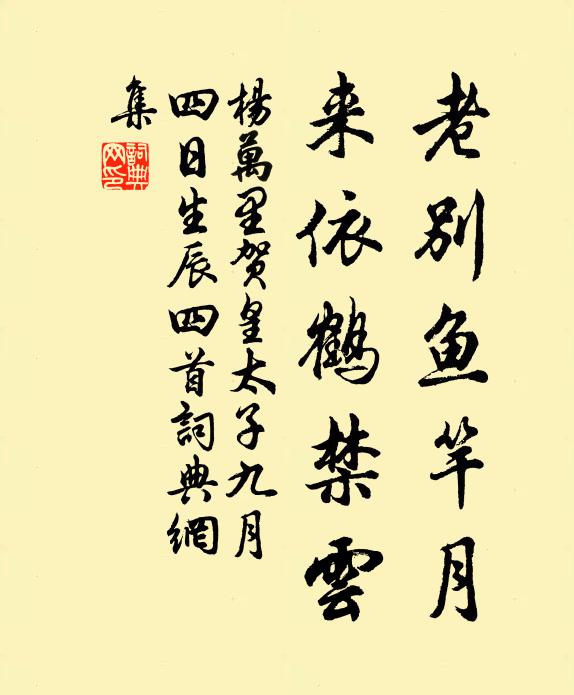 老别鱼竿月
来依鹤禁雲
楊萬里贺皇太子九月
四日生辰四首詞典網
集
詞典
网印